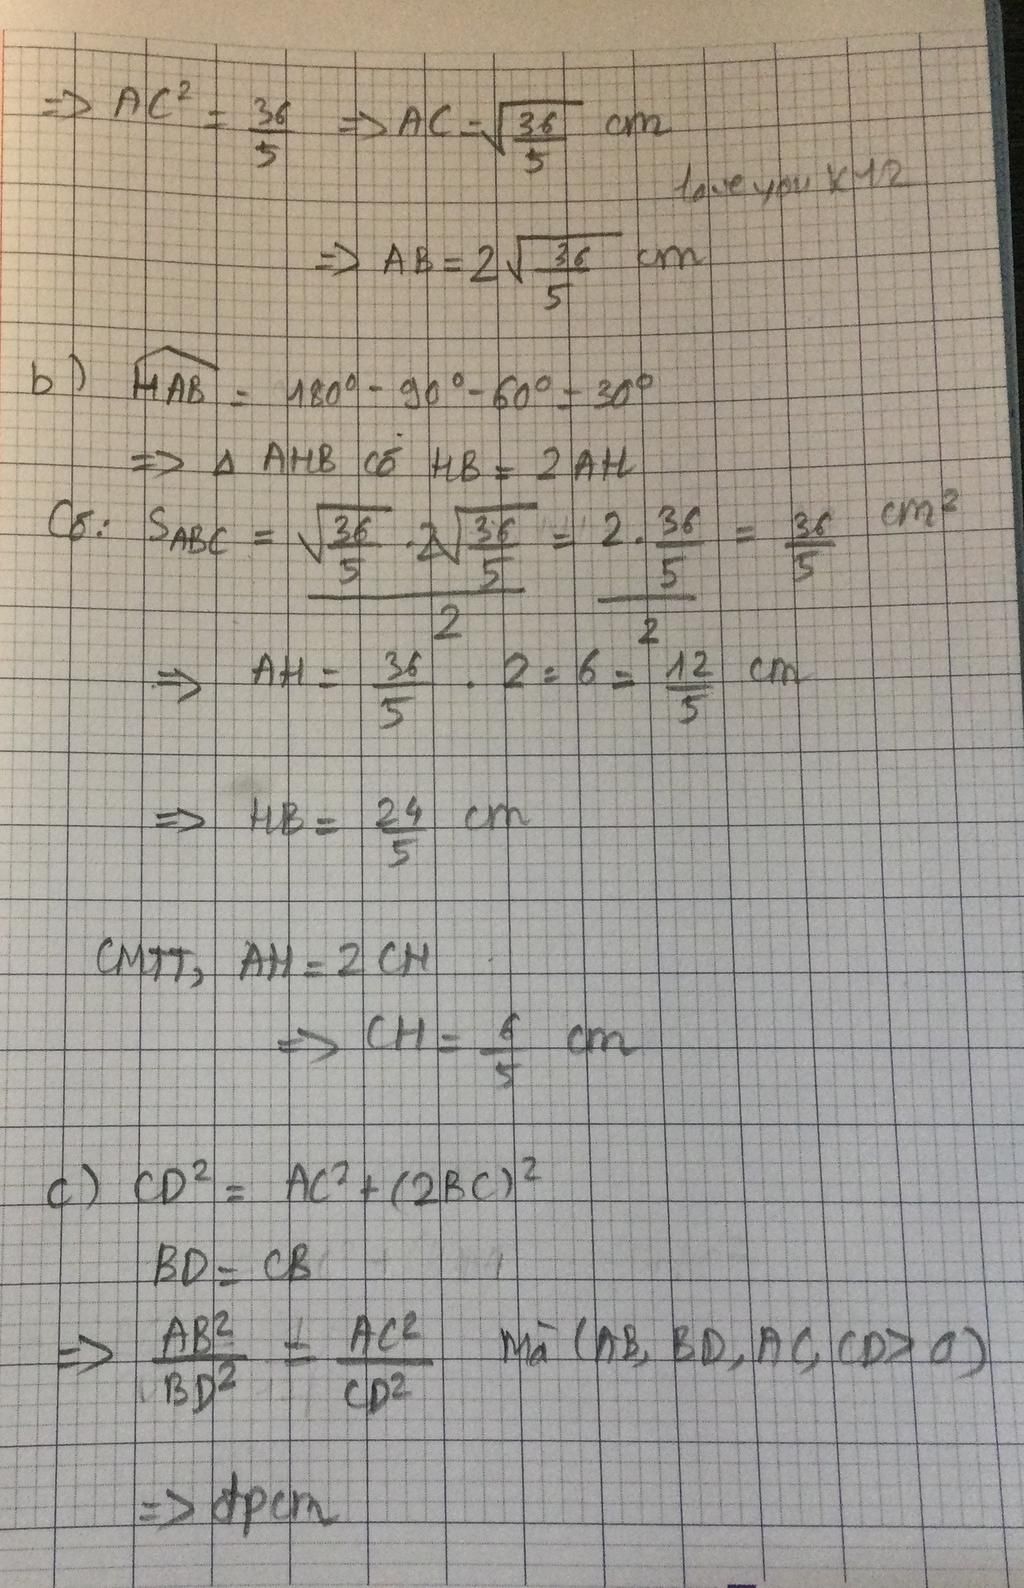 => AC² = 36/5 => AC = √(36/5) cm
love you K12
=> AB = 2√(36/5) cm
b) HAB = 180° - 90° - 60° = 30°
=> Δ AHB có HB = 2 AH
Có: S_ABC = (√(36/5) . 2√(36/5))/2 = (2 . 36/5)/2 = 36/5 cm²
=> AH = 36/5 . 2 = 6 = 12/5 cm
=> HB = 24/5 cm
CMTT, AH = 2 CH
=> CH = 6/5 cm
c) CD² = AC² + (2BC)²
BD = CB
=> AB²/BD² = AC²/CD² mà (AB, BD, AC, CD > 0)
=> đpcm